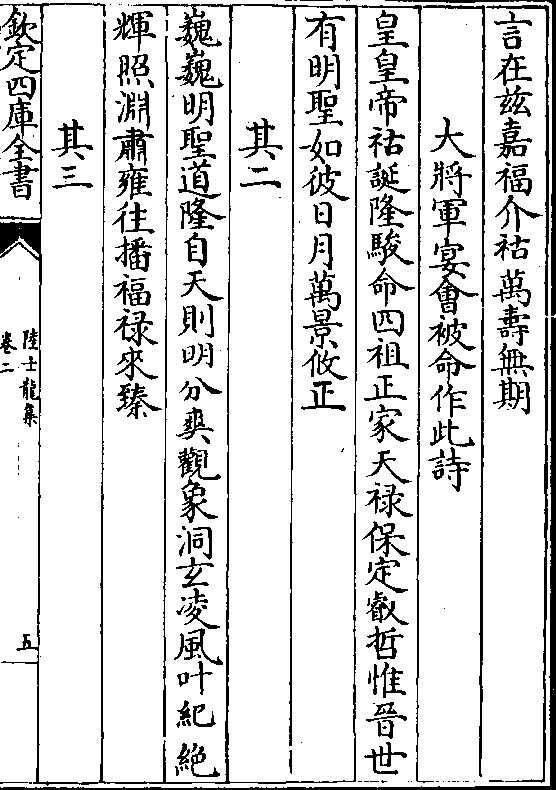 言在兹嘉福介祜萬壽無期
大將軍宴會被命作此詩
皇皇帝祜誕隆駿命四祖正家天禄保定叡哲惟晉世
有明聖如彼日月萬景攸正
其二
巍巍明聖道隆自天則明分爽觀象洞玄凌風叶紀絶
輝照淵肅雍往播福禄來臻
其三
欽定四庫全書
陸士龍集
卷二
五